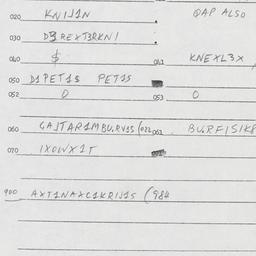 020 KNIJ1N . QAP ALSO
030 D3REXT3RKNI .
040 $ 041 KNEXL3X
050 D1PET1S PET1S
052 0 053 0
060 GAJTAR1MBURV1S (022 061 BURFISIKP
070 IXOWX1T
900 AXT1NAXC1KRIJ1S (984